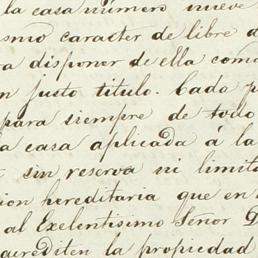 la casa número nueve
smo caracter de libre d
a disponer de ella como
n justo titulo. Cado p
para siempre de todo
a casa aplicada á la
sin reserva ni limita
ion hereditaria que en
al Exelentisimo Señor D
acrediten la propiedad